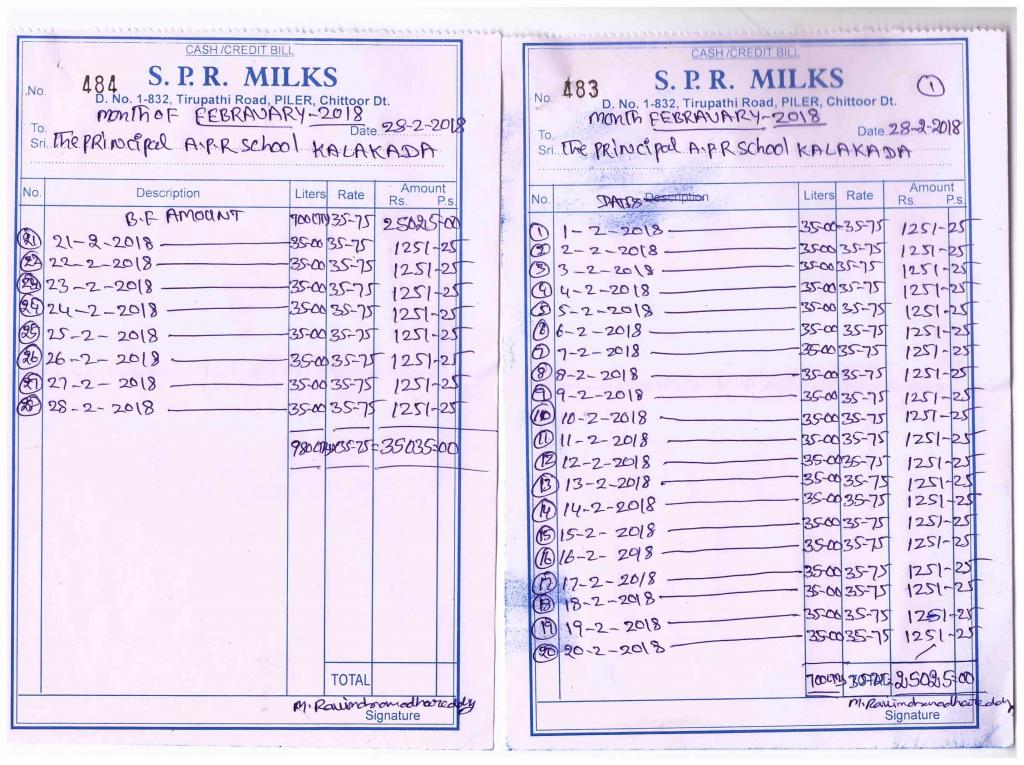 CASH /CREDIT BILL
No. 484
S. P. R. MILKS
D. No. 1-832, Tirupathi Road, PILER, Chittoor Dt.
month OF FEBRAVARY-2018
To. Date. 28-2-2018
Sri.. The Principal A.P.R School KALAKADA
No. Description Liters Rate Amount Rs. P.s.
B.F AMOUNT 700 35-75 25025-00
21 21-2-2018 35-00 35-75 1251-25
22 22-2-2018 35-00 35-75 1251-25
23 23-2-2018 35-00 35-75 1251-25
24 24-2-2018 35-00 35-75 1251-25
25 25-2-2018 35-00 35-75 1251-25
26 26-2-2018 35-00 35-75 1251-25
27 27-2-2018 35-00 35-75 1251-25
28 28-2-2018 35-00 35-75 1251-25
980 35-75 = 35035=00
TOTAL
M. Ravindranadhareddy
Signature
CASH /CREDIT BILL
No. 483
S. P. R. MILKS 1
D. No. 1-832, Tirupathi Road, PILER, Chittoor Dt.
month FEBRAVARY-2018
To. Date. 28-2-2018
Sri... The Principal A.P.R School KALAKADA
No. Description Liters Rate Amount Rs. P.s.
1 1-2-2018 35-00 35-75 1251-25
2 2-2-2018 35-00 35-75 1251-25
3 3-2-2018 35-00 35-75 1251-25
4 4-2-2018 35-00 35-75 1251-25
5 5-2-2018 35-00 35-75 1251-25
6 6-2-2018 35-00 35-75 1251-25
7 7-2-2018 35-00 35-75 1251-25
8 8-2-2018 35-00 35-75 1251-25
9 9-2-2018 35-00 35-75 1251-25
10 10-2-2018 35-00 35-75 1251-25
11 11-2-2018 35-00 35-75 1251-25
12 12-2-2018 35-00 35-75 1251-25
13 13-2-2018 35-00 35-75 1251-25
14 14-2-2018 35-00 35-75 1251-25
15 15-2-2018 35-00 35-75 1251-25
16 16-2-2018 35-00 35-75 1251-25
17 17-2-2018 35-00 35-75 1251-25
18 18-2-2018 35-00 35-75 1251-25
19 19-2-2018 35-00 35-75 1251-25
20 20-2-2018 35-00 35-75 1251-25
700 25025=00
M. Ravindranadhareddy
Signature